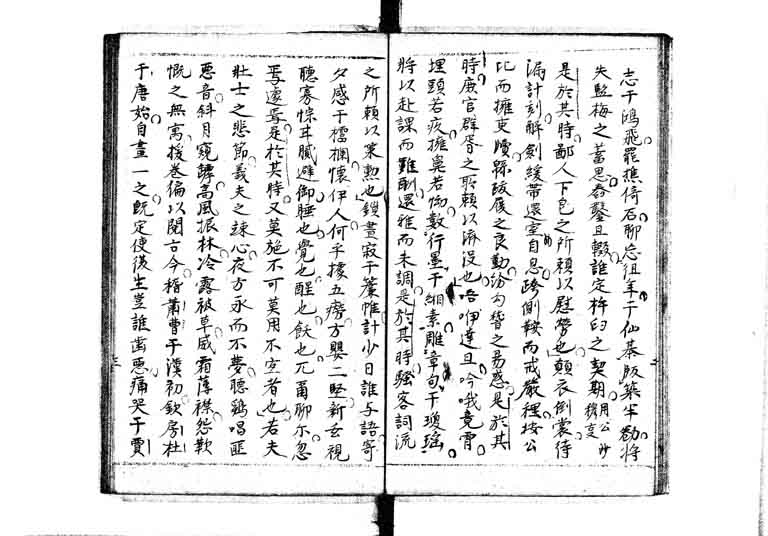 志于鴻飛罷樵倚石聊忘徂年于仙棊版築半勸將
失監梅之蓄思舂鑿且輟誰定杵臼之契期用公沙穆事
是於其時鄙人下邑之所賴以慰勞也顛衣倒裳待
漏計刻解劍緩帶還室自息跨倒鞍而戒嚴裡按公
比而擁吏牘躧跋履之良勤汾勻眥之易惑是於其
時庶官群胥之所賴以濟沒也唔咿達旦吟哦竟霄
埋頭若疾擁鼻若傷數行墨于緗素雕章句于瓊瑤
將以赴課而難酬還雅而未調是於其時騷客詞流
之所賴以策勲也鎖晝寂于簾帷計少日誰与語寄
夕感于櫺欄懷伊人何乎據五癆方嬰二竪新玄視
聽寡悰耳膩避御睡也覺也醒也飫也兀甭聊尔忽
焉遽焉是於其時又莫施不可莫用不空者也若夫
壯士之悲節義夫之疎心夜方永而不夢聽鷄唱匪
惡音斜月窺罅高風振林冷露被草威霜薄襟怨歎
慨之無寓援巻徧以閱古今稽蕭曹于漢初欽房杜
于唐始自畫一之旣定使後生豈誰齒惡痛哭于賈